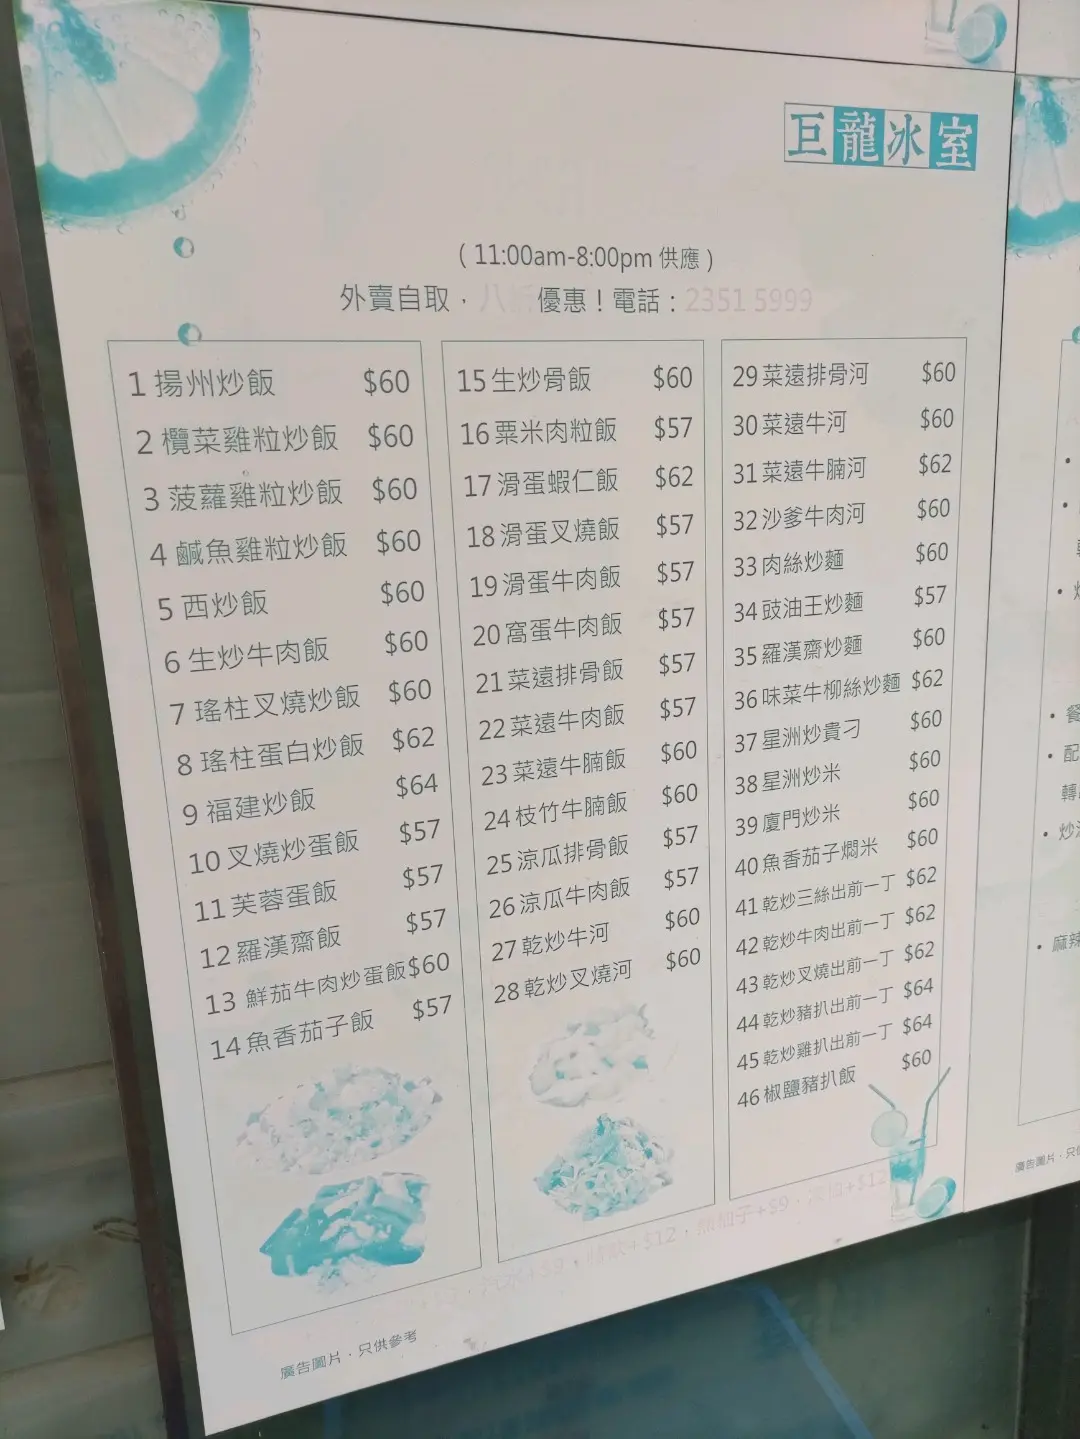 巨龍冰室
（11:00am-8:00pm 供應）
外賣自取，八折優惠！電話：2351 5999
1 揚州炒飯 $60
2 欖菜雞粒炒飯 $60
3 菠蘿雞粒炒飯 $60
4 鹹魚雞粒炒飯 $60
5 西炒飯 $60
6 生炒牛肉飯 $60
7 瑤柱叉燒炒飯 $60
8 瑤柱蛋白炒飯 $62
9 福建炒飯 $64
10 叉燒炒蛋飯 $57
11 芙蓉蛋飯 $57
12 羅漢齋飯 $57
13 鮮茄牛肉炒蛋飯 $60
14 魚香茄子飯 $57
15 生炒骨飯 $60
16 粟米肉粒飯 $57
17 滑蛋蝦仁飯 $62
18 滑蛋叉燒飯 $57
19 滑蛋牛肉飯 $57
20 窩蛋牛肉飯 $57
21 菜遠排骨飯 $57
22 菜遠牛肉飯 $57
23 菜遠牛腩飯 $60
24 枝竹牛腩飯 $60
25 涼瓜排骨飯 $57
26 涼瓜牛肉飯 $57
27 乾炒牛河 $60
28 乾炒叉燒河 $60
29 菜遠排骨河 $60
30 菜遠牛河 $60
31 菜遠牛腩河 $62
32 沙爹牛肉河 $60
33 肉絲炒麵 $60
34 豉油王炒麵 $57
35 羅漢齋炒麵 $60
36 味菜牛柳絲炒麵 $62
37 星洲炒貴刁 $60
38 星洲炒米 $60
39 廈門炒米 $60
40 魚香茄子燜米 $60
41 乾炒三絲出前一丁 $62
42 乾炒牛肉出前一丁 $62
43 乾炒叉燒出前一丁 $62
44 乾炒豬扒出前一丁 $64
45 乾炒雞扒出前一丁 $64
46 椒鹽豬扒飯 $60
+$9，汽水+$9，特飲+$12，熱柚子+$9，凍柚+$12
廣告圖片，只供參考
餐
配
轉
炒
麻辣
廣告圖片，只供